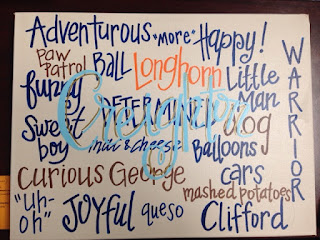 Adventurous "more" Happy!
Paw
Patrol
Ball
Longhorn
Little
Man
funny
Creighton
DETERMINED
Sweet
boy
mac & cheese
Balloons
WARRIOR
Curious George
cars
mashed potatoes
"uh-
oh"
Joyful
queso
Clifford